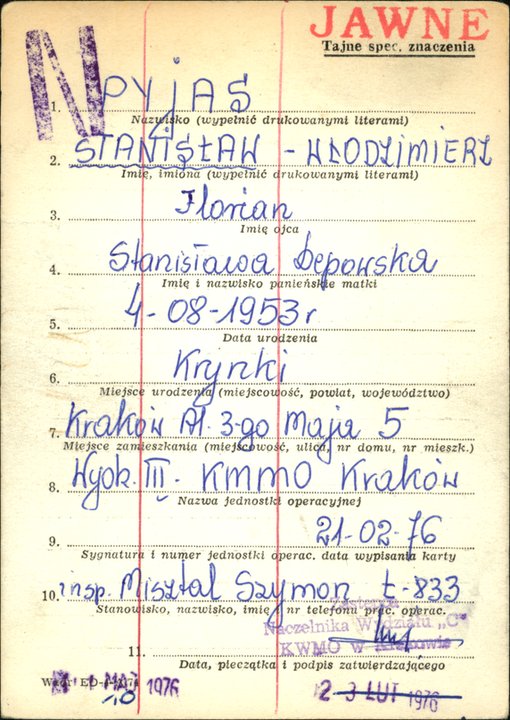 JAWNE
Tajne spec. znaczenia
N
1. PYjAS
Nazwisko (wypełnić drukowanymi literami)
2. STANISŁAW - WŁODZIMIERZ
Imię, imiona (wypełnić drukowanymi literami)
3. Florian
Imię ojca
4. Stanisława Depowska
Imię i nazwisko panieńskie matki
5. 4-08-1953r
Data urodzenia
6. Krynki
Miejsce urodzenia (miejscowość, powiat, województwo)
7. Kraków Al. 3-go Maja 5
Miejsce zamieszkania (miejscowość, ulica, nr domu, nr mieszk.)
8. Wyok. III. KMMO Kraków
Nazwa jednostki operacyjnej
9. 21-02-76
Sygnatura i numer jednostki operac. data wypisania karty
10. insp. Misztal Szymon t-833
Stanowisko, nazwisko, imię, nr telefonu prac. operac.
Naczelnika Wydziału „C"
KWMO w Krakowie
11.
Data, pieczątka i podpis zatwierdzającego
MAJ 1976
10
2 3 LUT 1976